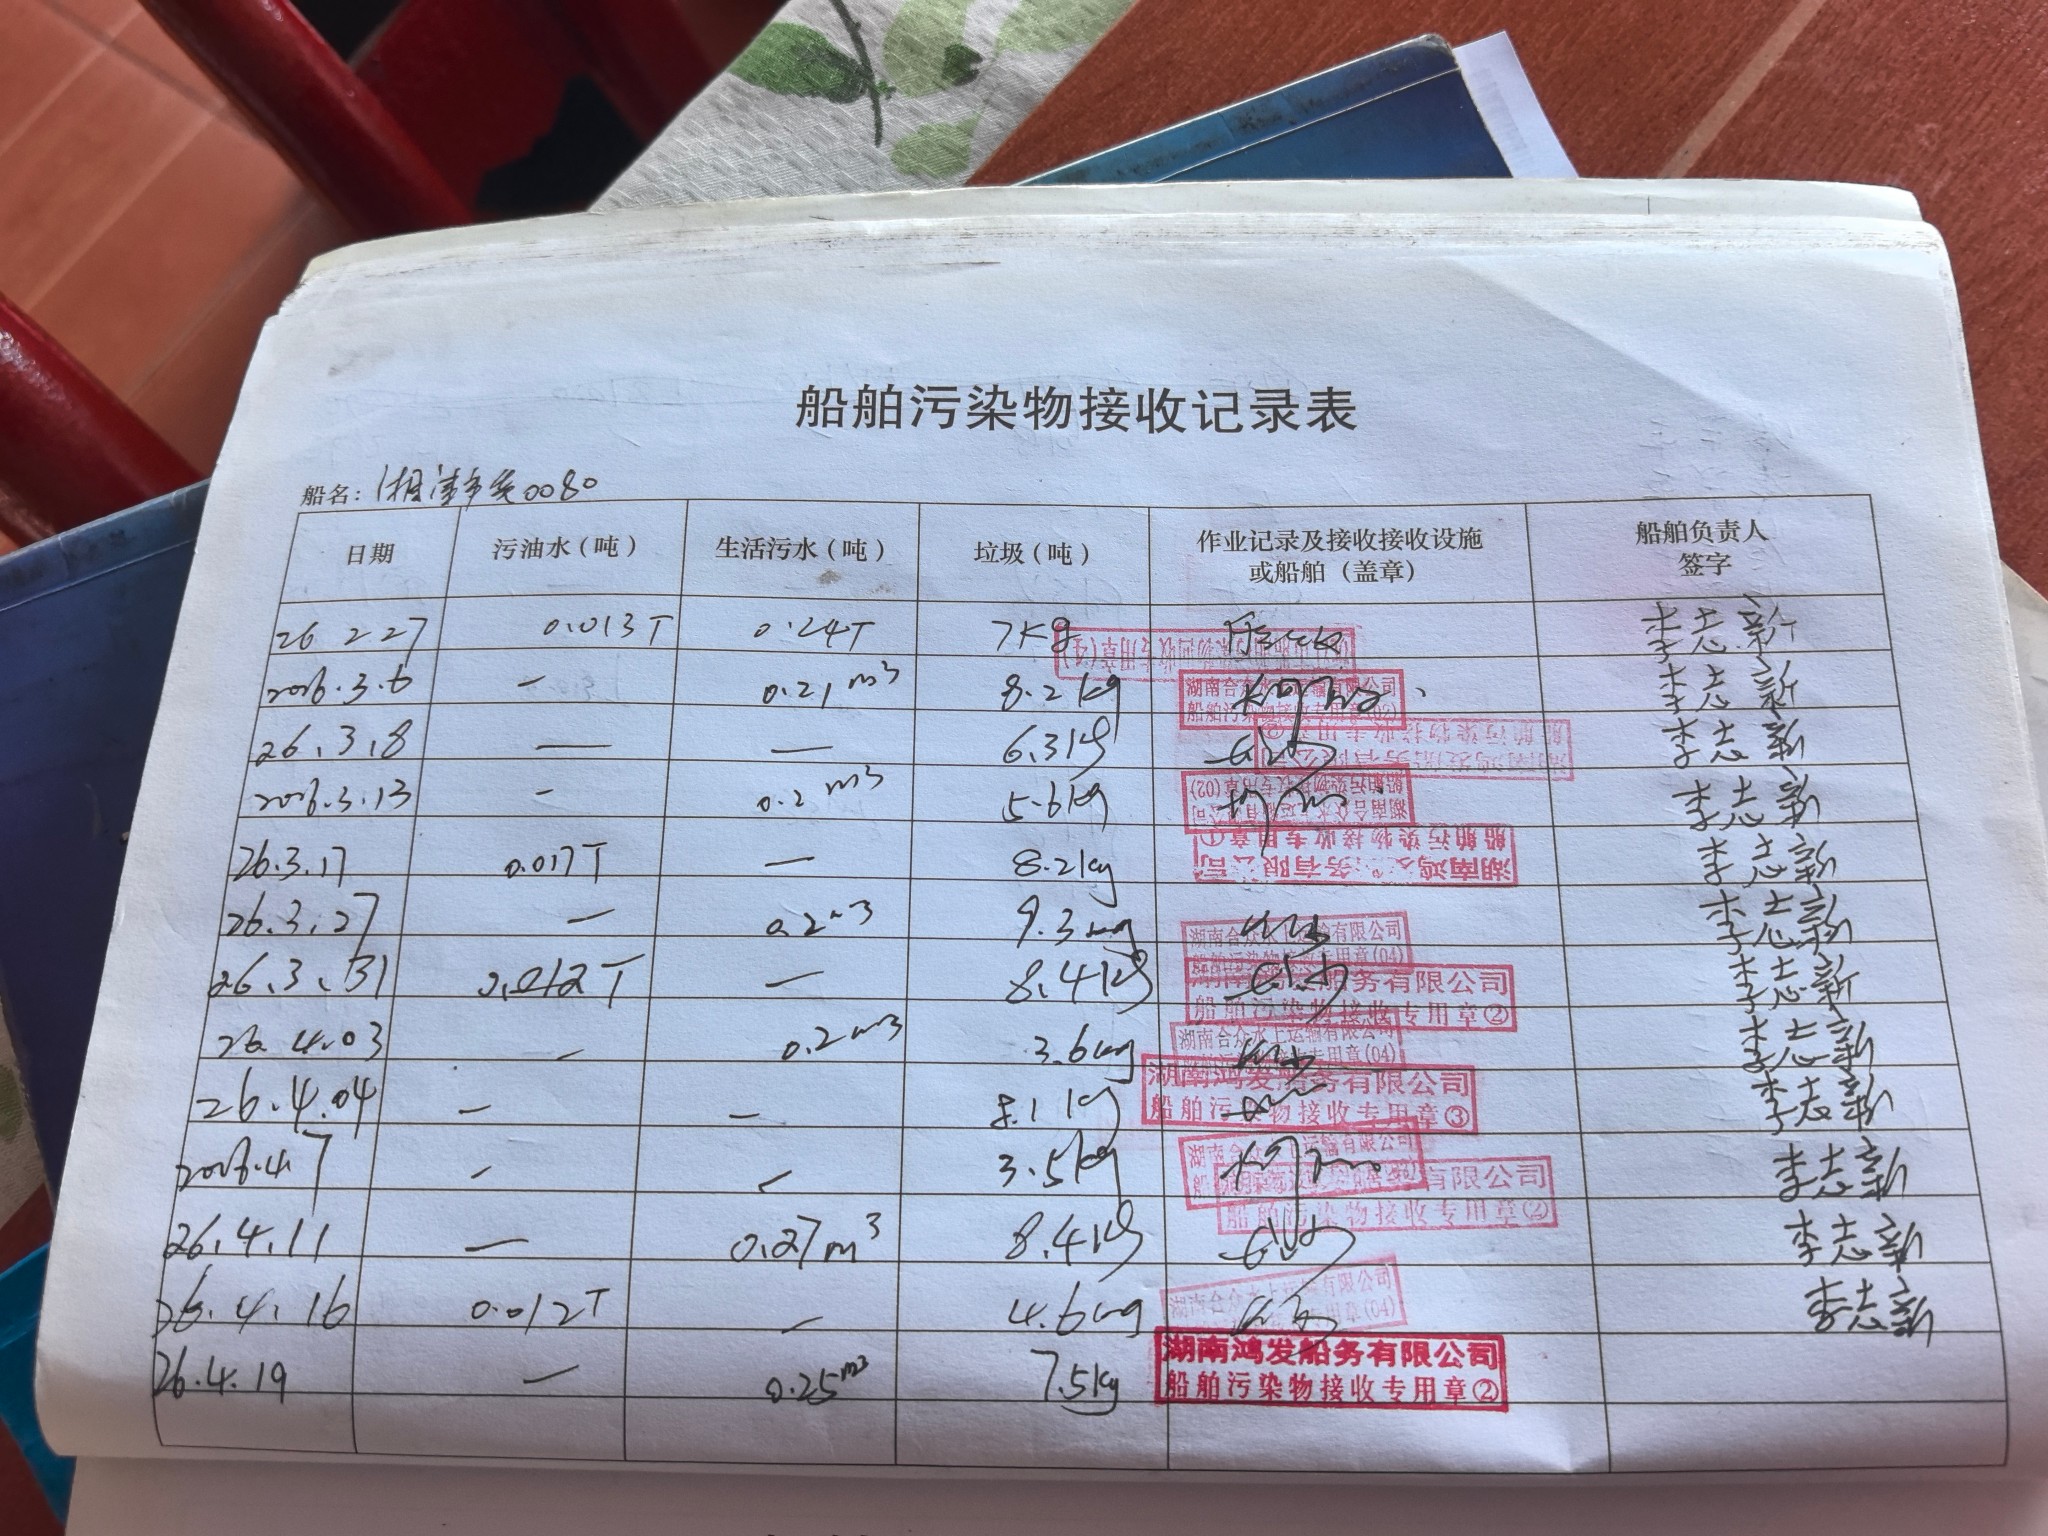 船舶污染物接收记录表
船名： 0080
日期 污油水（吨） 生活污水（吨） 垃圾（吨） 作业记录及接收接收设施或船舶（盖章） 船舶负责人签字
26 2 27 0.013T 0.24T 7Kg 李志新
2026.3.6 - 0.21m³ 8.2kg 湖南合众水上运输有限公司 船舶污染物接收专用章(02) 李志新
26.3.8 — — 6.3kg 湖南鸿发船务有限公司 船舶污染物接收专用章 李志新
2026.3.13 - 0.2m³ 5.6kg 湖南合众水上运输有限公司 船舶污染物接收专用章(02) 李志新
26.3.17 0.017T — 8.2kg 湖南鸿发船务有限公司 船舶污染物接收专用章① 李志新
26.3.27 — 0.2m³ 9.3kg 湖南合众水上运输有限公司 船舶污染物接收专用章(04) 李志新
26.3.31 0.012T — 8.4kg 湖南鸿发船务有限公司 船舶污染物接收专用章② 李志新
26.4.03 - 0.2m³ 3.6kg 湖南合众水上运输有限公司 船舶污染物接收专用章(04) 李志新
26.4.04 — — 8.1kg 湖南鸿发船务有限公司 船舶污染物接收专用章③ 李志新
2026.4.7 - - 3.5kg 湖南合众水上运输有限公司 李志新
26.4.11 — 0.27m³ 8.4kg 湖南鸿发船务有限公司 船舶污染物接收专用章② 李志新
26.4.16 0.012T — 4.6kg 湖南合众水上运输有限公司 船舶污染物接收专用章(04) 李志新
26.4.19 — 0.25m³ 7.5kg 湖南鸿发船务有限公司 船舶污染物接收专用章②